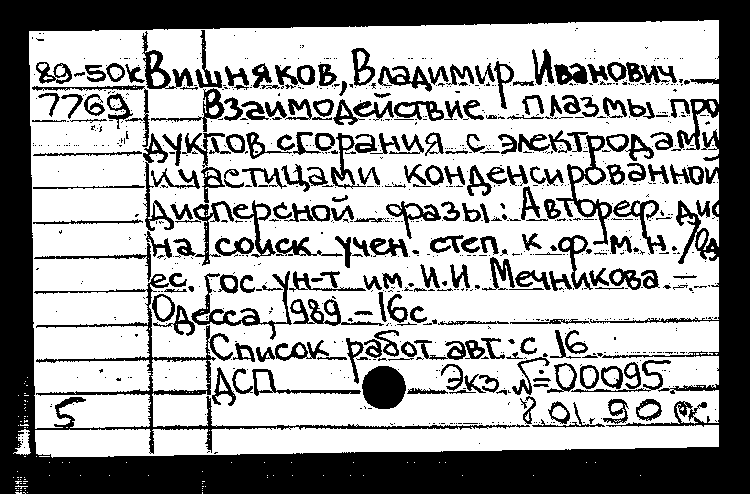 89-50к Вишняков, Владимир Иванович
7769 Взаимодействие плазмы про
дуктов сгорания с электродами
и частицами конденсированной
дисперсной фазы: Автореф. дис
на соиск. учен. степ. к.ф.-м.н. /Од
ес. гос. ун-т им. И.И. Мечникова. –
Одесса, 1989. – 16с.
Список работ авт.: с. 16
ДСП Экз. №=00095
5 8.01.90